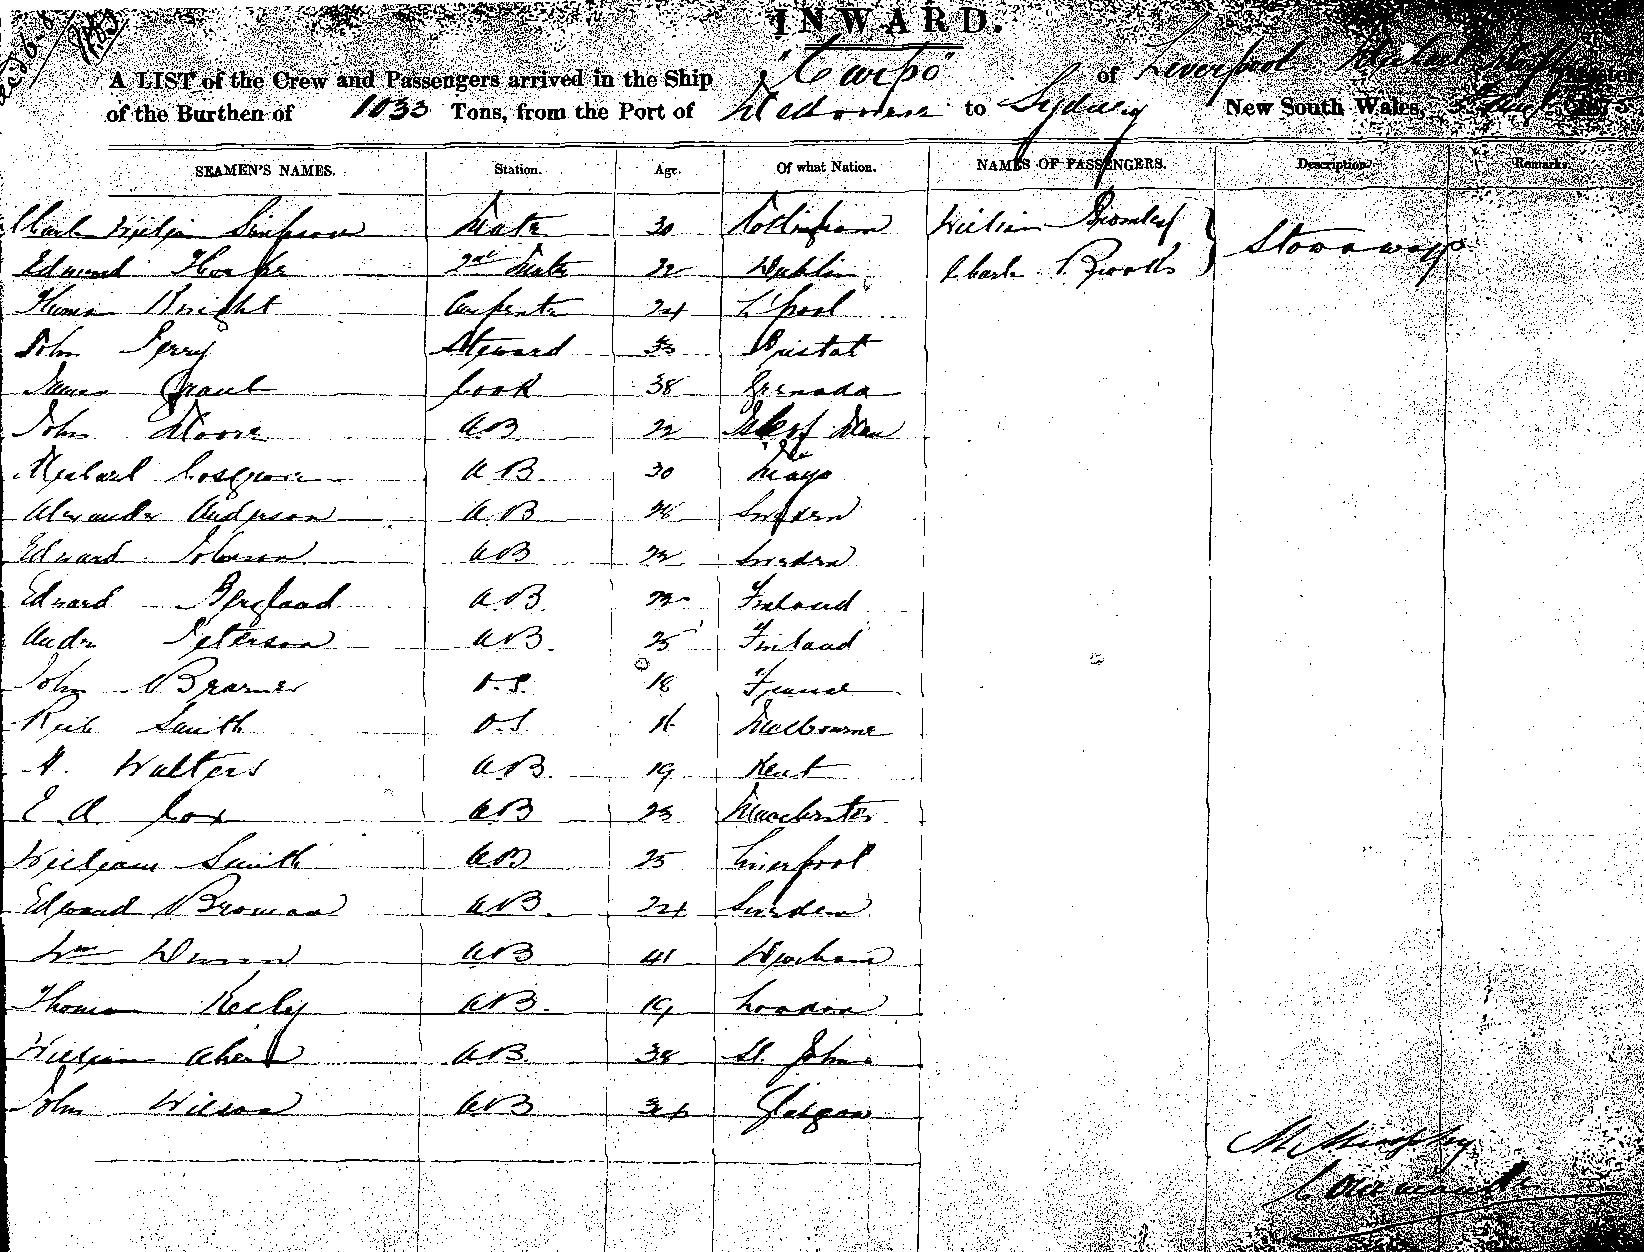 INWARD.
A LIST of the Crew and Passengers arrived in the Ship "Carpo" of Liverpool Michael Murphy Master
of the Burthen of 1033 Tons, from the Port of Melbourne to Sydney New South Wales,
SEAMEN'S NAMES. Station. Age. Of what Nation. NAMES OF PASSENGERS. Description. Remarks.
William Simpson Mate 30 Nottingham William Bromley
Edmund 2nd Mate 22 Dublin Brooks Stowaways
Bright Carpenter 24 L'pool
John Perry Steward 33 Bristol
James Grant Cook 38 Grenada
John Moore AB 22 Isle of Man
Michael Cosgrove AB 30 Mayo
Alexander Anderson AB Sweden
Edward Johnson AB 22 Sweden
Edward Bergland AB Finland
Peterson AB 25 Finland
John O.S. 18 France
Smith O.S. Melbourne
Walters AB. 19 Kent
E A Cox AB 23 Manchester
William Smith AB 25 Liverpool
Edward Broman AB. 24 Sweden
Wm AB 41
Thomas Keely AB. 19 London
William AB 38 St. Johns
John Wilson AB 34 Glasgow
M Murphy